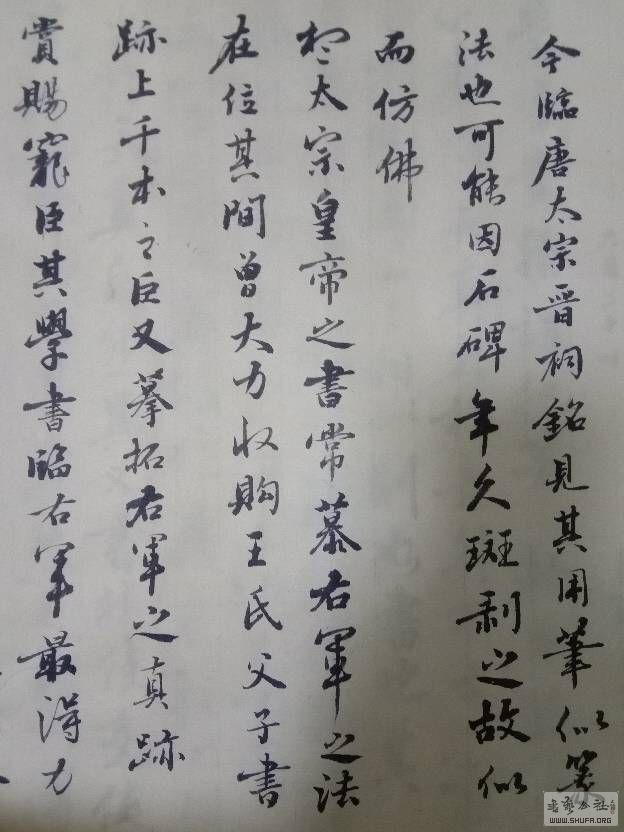 今臨唐太宗晉祠銘見其用筆似篆
法也可能因石碑年久斑剥之故似
而仿佛
太宗皇帝之書常慕右軍之法
在位其間曾大力收购王氏父子書
跡上千本之臣又摹拓右軍之真跡
賞賜寵臣其學書臨右軍最得力
書藝公社
WWW.SHUFA.ORG